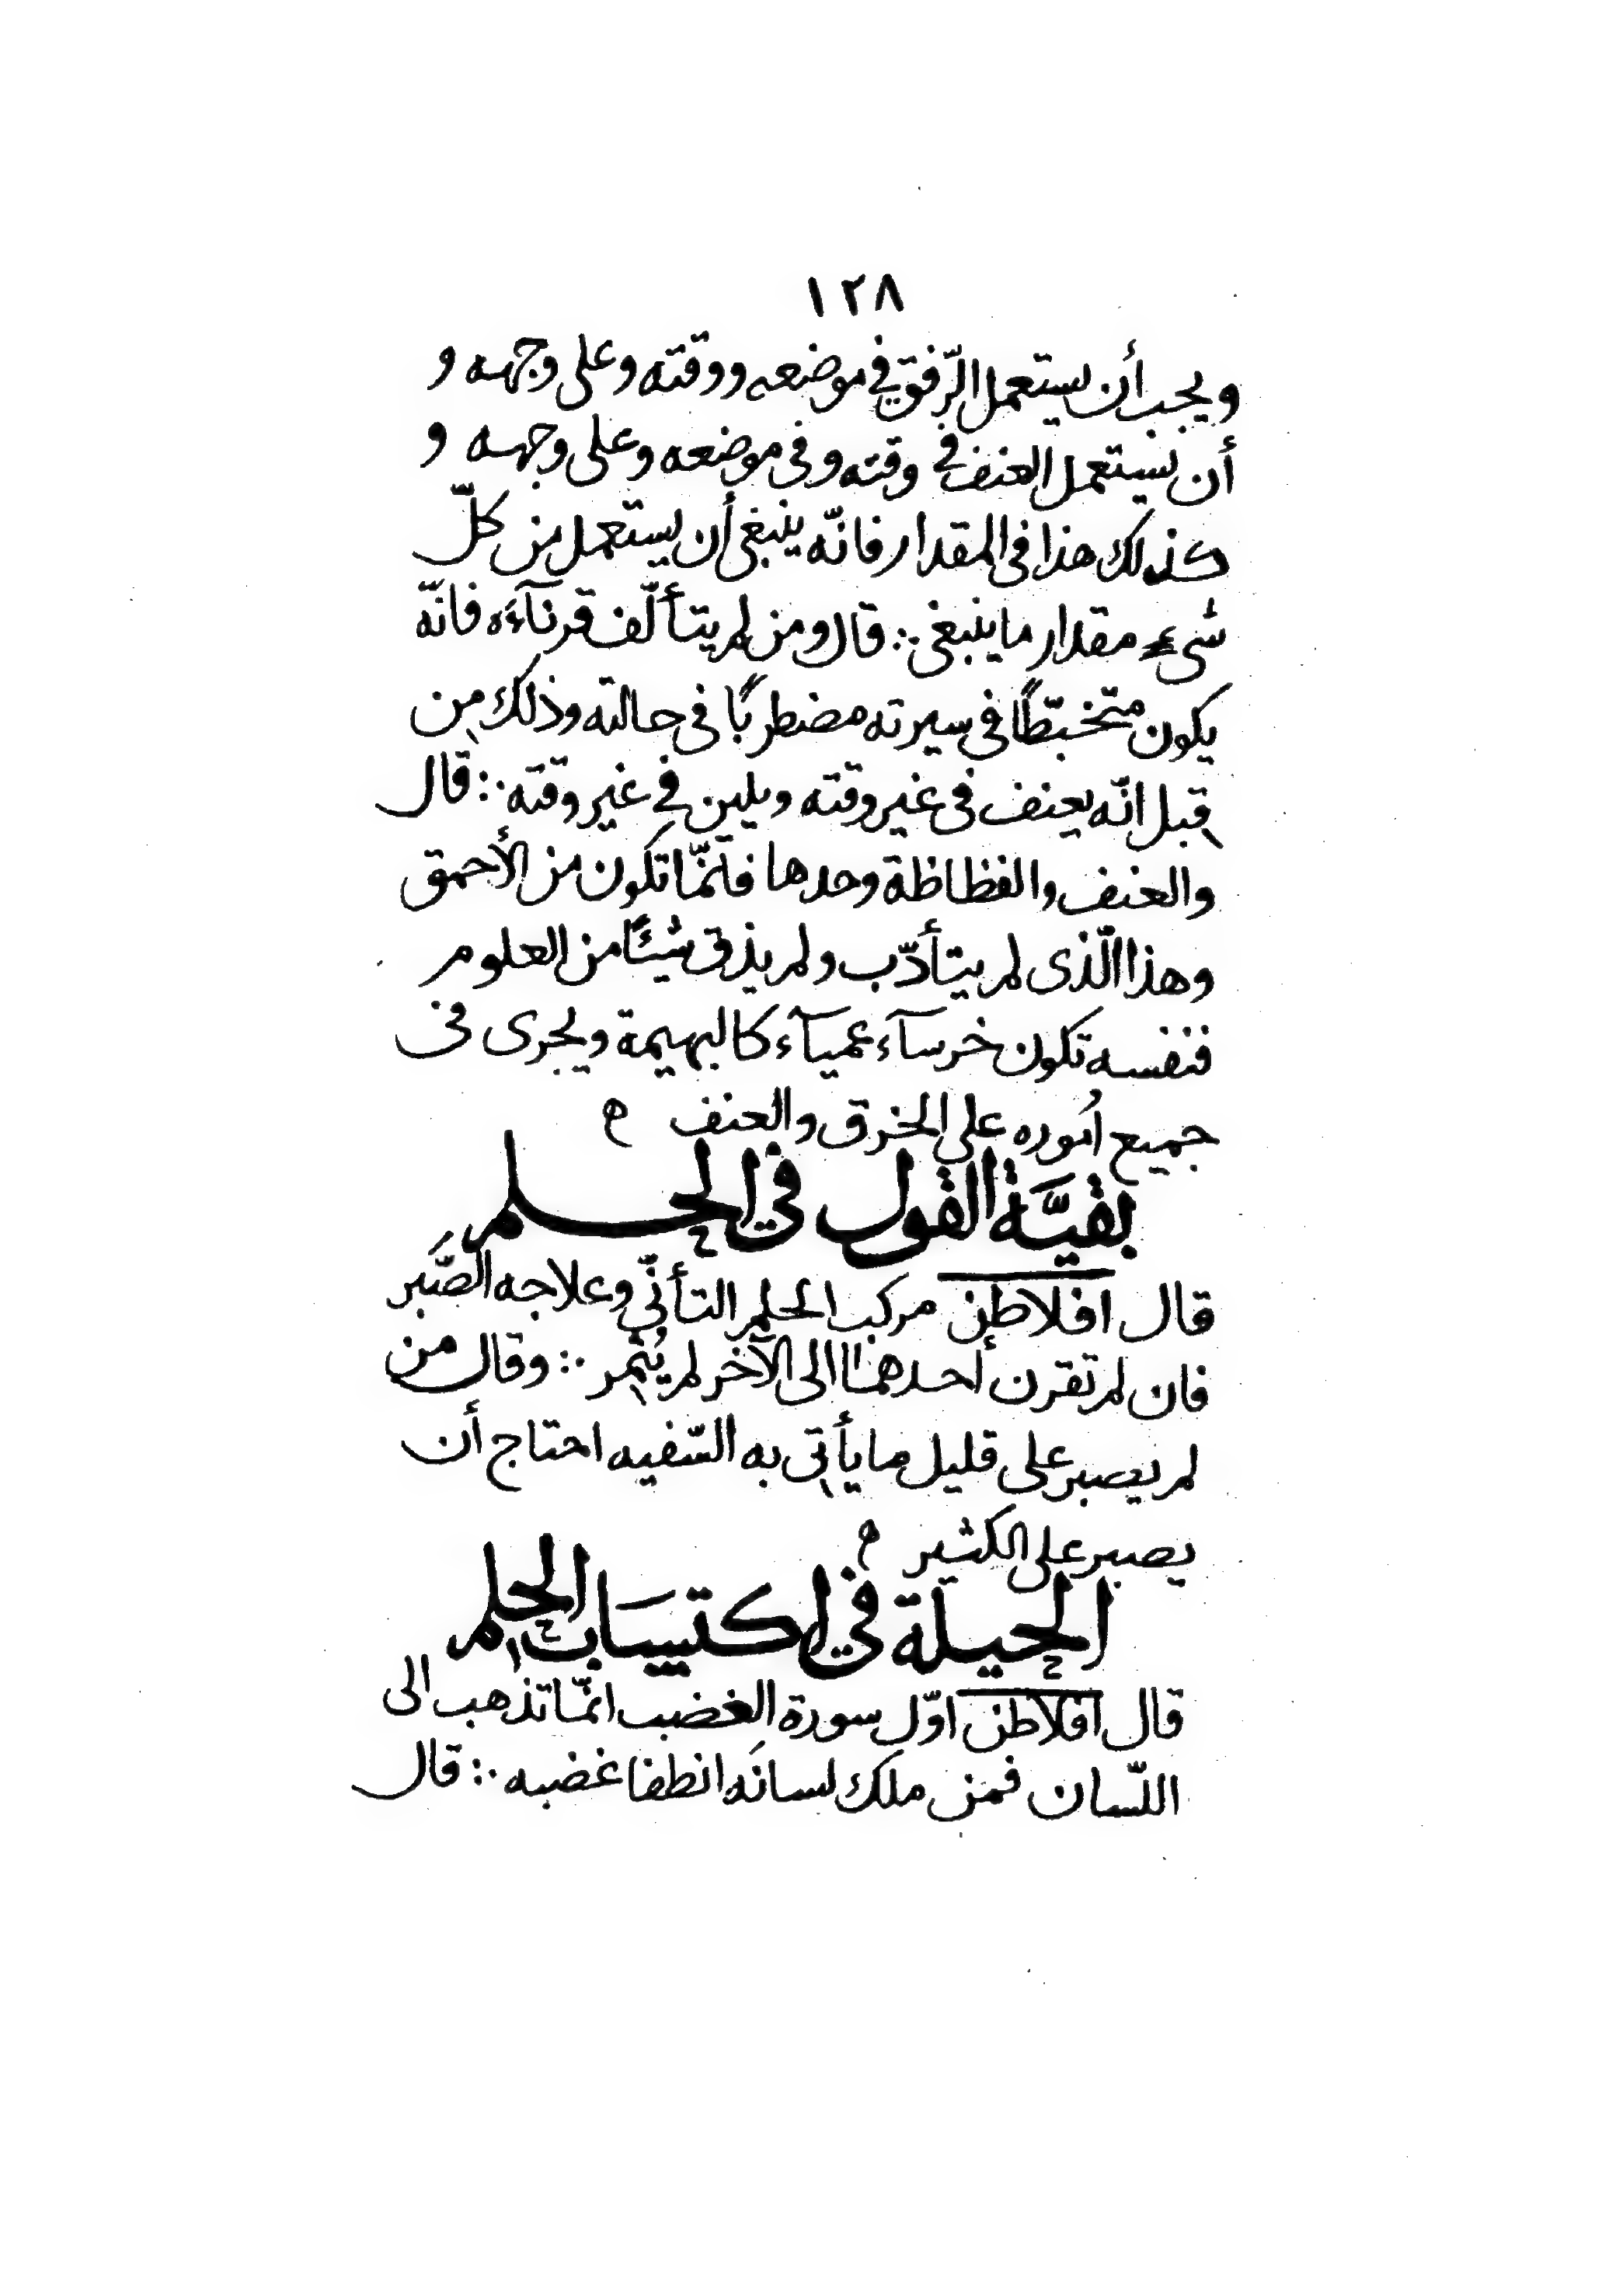 ١٢٨
ويجب أن يستعمل الرّفق في موضعه ووقته وعلى وجهه و
أن يستعمل العنف في وقته وفى موضعه وعلى وجهه و
كذلك هذا فى المقدار فانّه ينبغى أن يستعمل من كلّ
شىء مقدار ما ينبغى ∴ قال ومن لم يتألّف قرنآءه فانّه
يكون متخبّطًا فى سيرته مضطربًا فى حالته وذلك من
قبل انّه يعنف فى غير وقته ويلين في غير وقته ∴ قال
والعنف والفظاظة وحدها فانّما تكون من الأحمق
وهذا الّذى لم يتأدّب ولم يذق شيئًا من العلوم
فنفسه تكون خرسآء عميآء كالبهيمة ويجرى فى
جميع اُموره على الخرق والعنف ه
بقيَّة القول في الحلم
قال افلاطن مركب الحلم التأنّي وعلاجه الصَّبر
فان لم تقرن أحدهما الى الآخر لم يُثمر ∴ وقال من
لم يصبر على قليل ما يأتى به السّفيه احتاج أن
يصبر على الكثير ه
الحيلة في اكتسَاب الحلم
قال افلاطن اوّل سورة الغضب انّما تذهب الى
اللّسان فمن ملك لسانَه انطفا غضبه ∴ قال